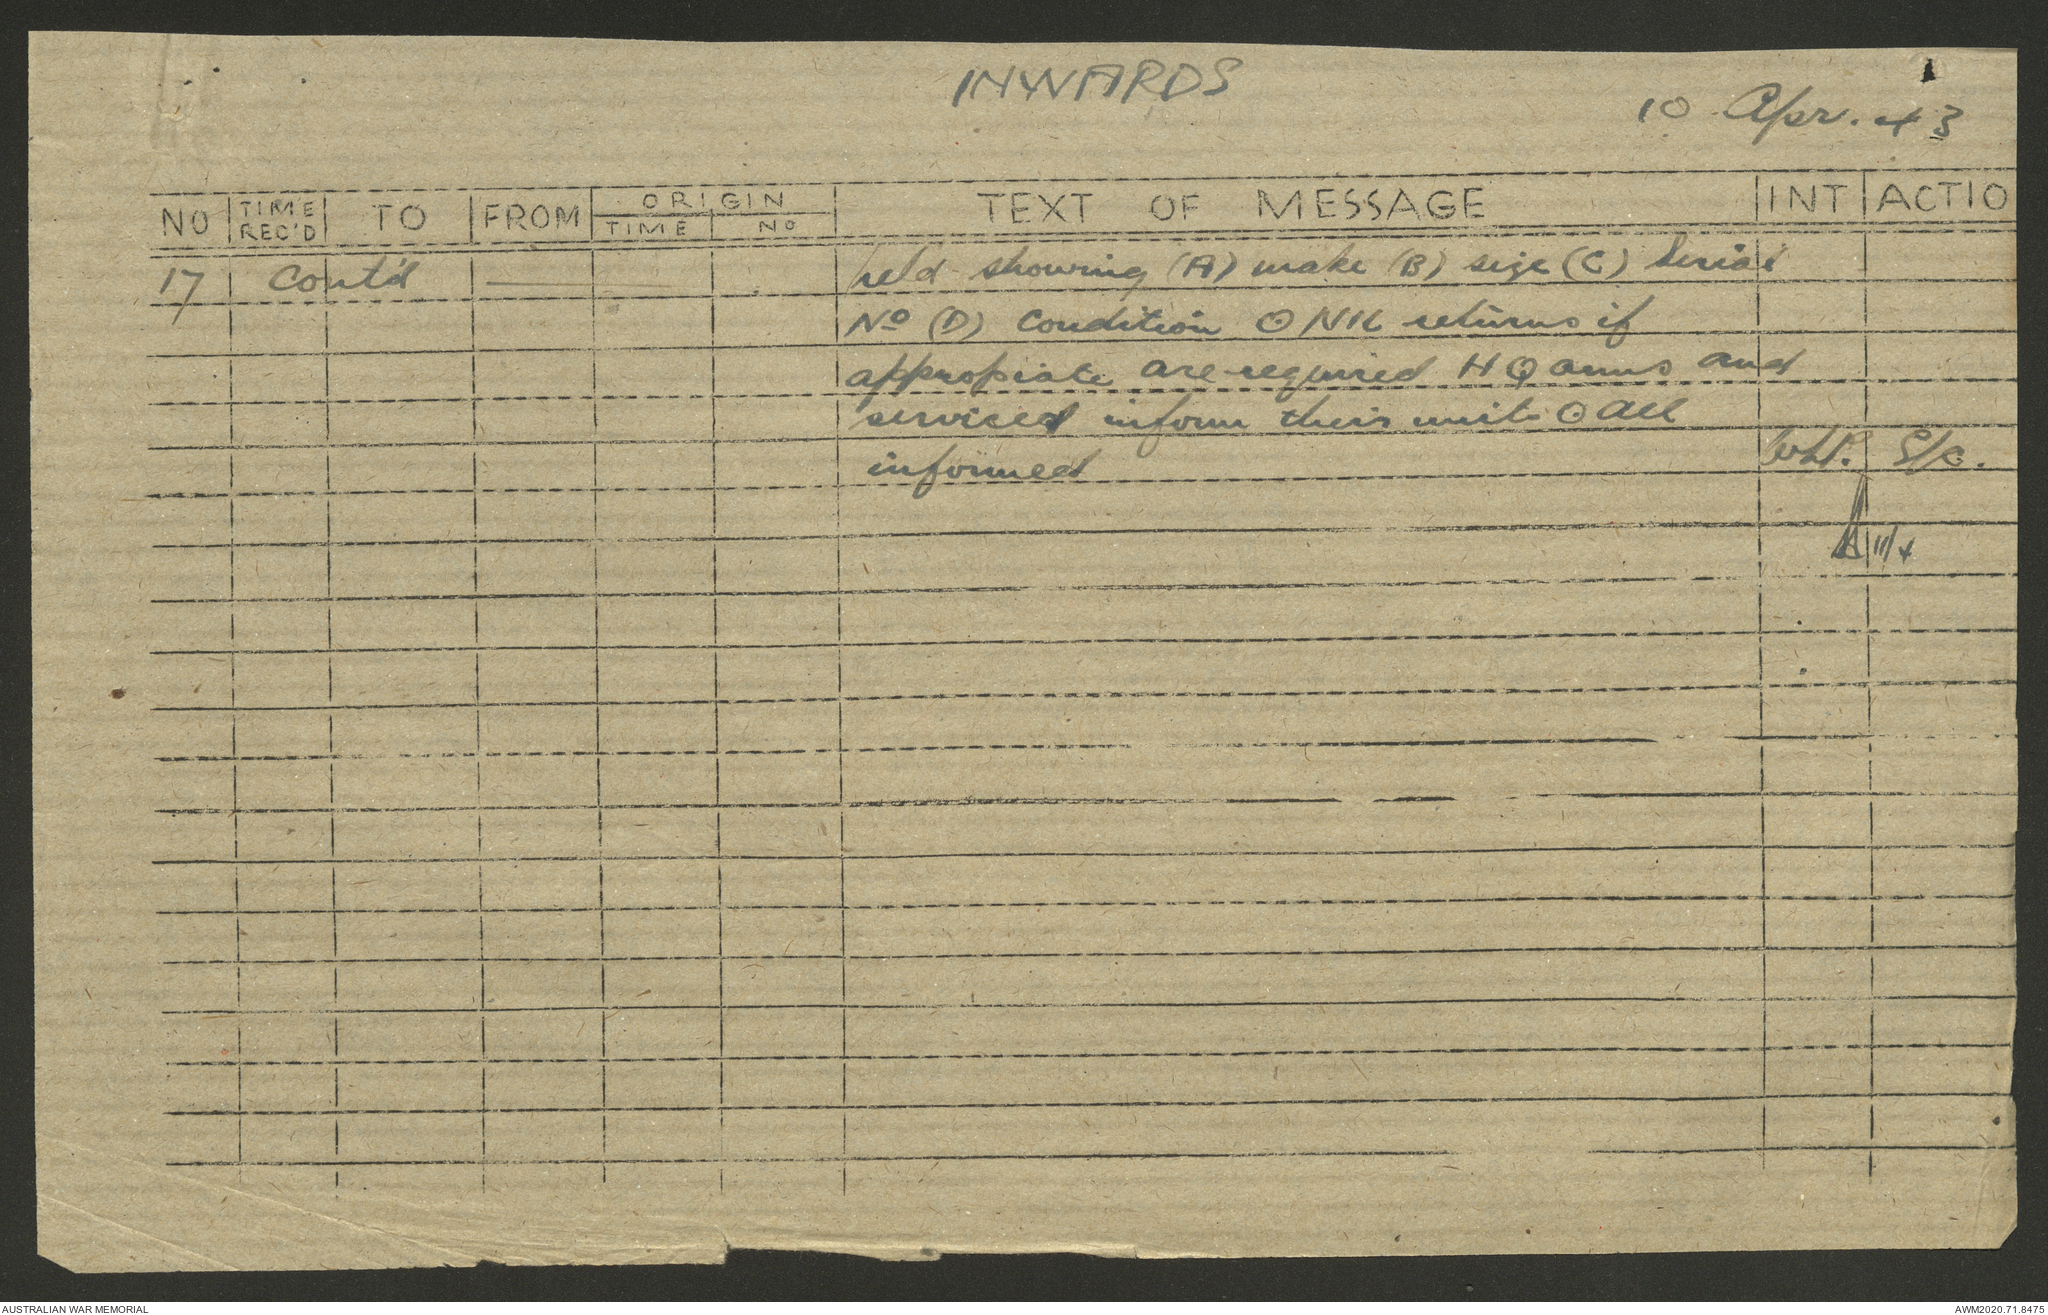 INWARDS
10 Apr. 43
NO TIME REC'D TO FROM ORIGIN TIME No TEXT OF MESSAGE INT ACTIO
17 Cont'd held showing (A) make (B) size (C) Serial
No (D) Condition ⊙ NIL returns if
appropiate are required HQ arms and
services inform their units ⊙ all
informed WLP. S/C.
11/4
AUSTRALIAN WAR MEMORIAL AWM2020.71.8475